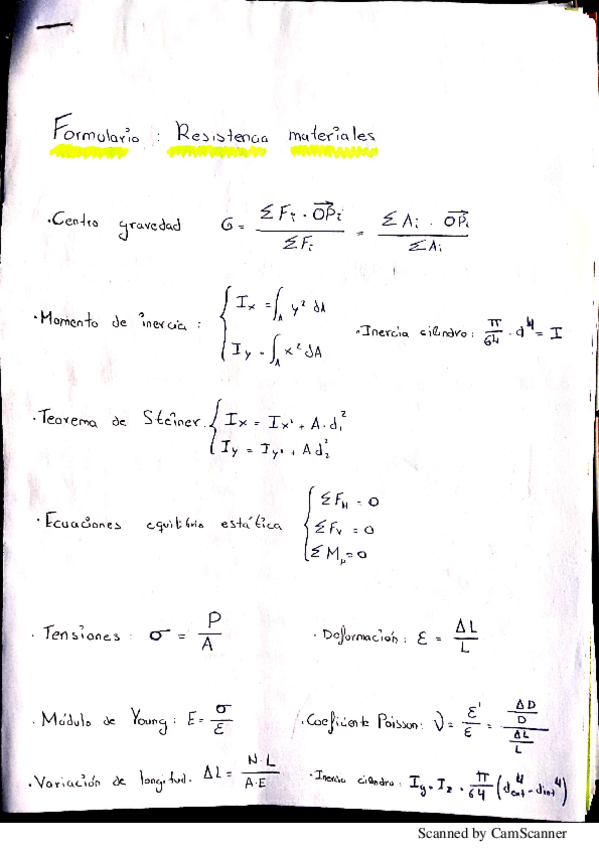 Formulario : Resistencia materiales
·Centro gravedad G = ΣFi · OPi / ΣFi = ΣAi · OPi / ΣAi
·Momento de inercia : { Ix = ∫A y² dA
Iy = ∫A x² dA
·Inercia cilindro: π/64 · d⁴ = I
·Teorema de Steiner. { Ix = Ix' + A·d₁²
Iy = Iy' + A d₂²
·Ecuaciones equilibrio estática { ΣFH = 0
ΣFV = 0
ΣMμ = 0
· Tensiones : σ = P/A
· Deformación : ε = ΔL/L
· Módulo de Young : E = σ/ε
·Coeficiente Poisson: ν = ε'/ε = (ΔD/D)/(ΔL/L)
·Variación de longitud. ΔL = N·L/A·E
·Inercia cilindro : Iy = Iz = π/64 (dext⁴ - dint⁴)
Scanned by CamScanner